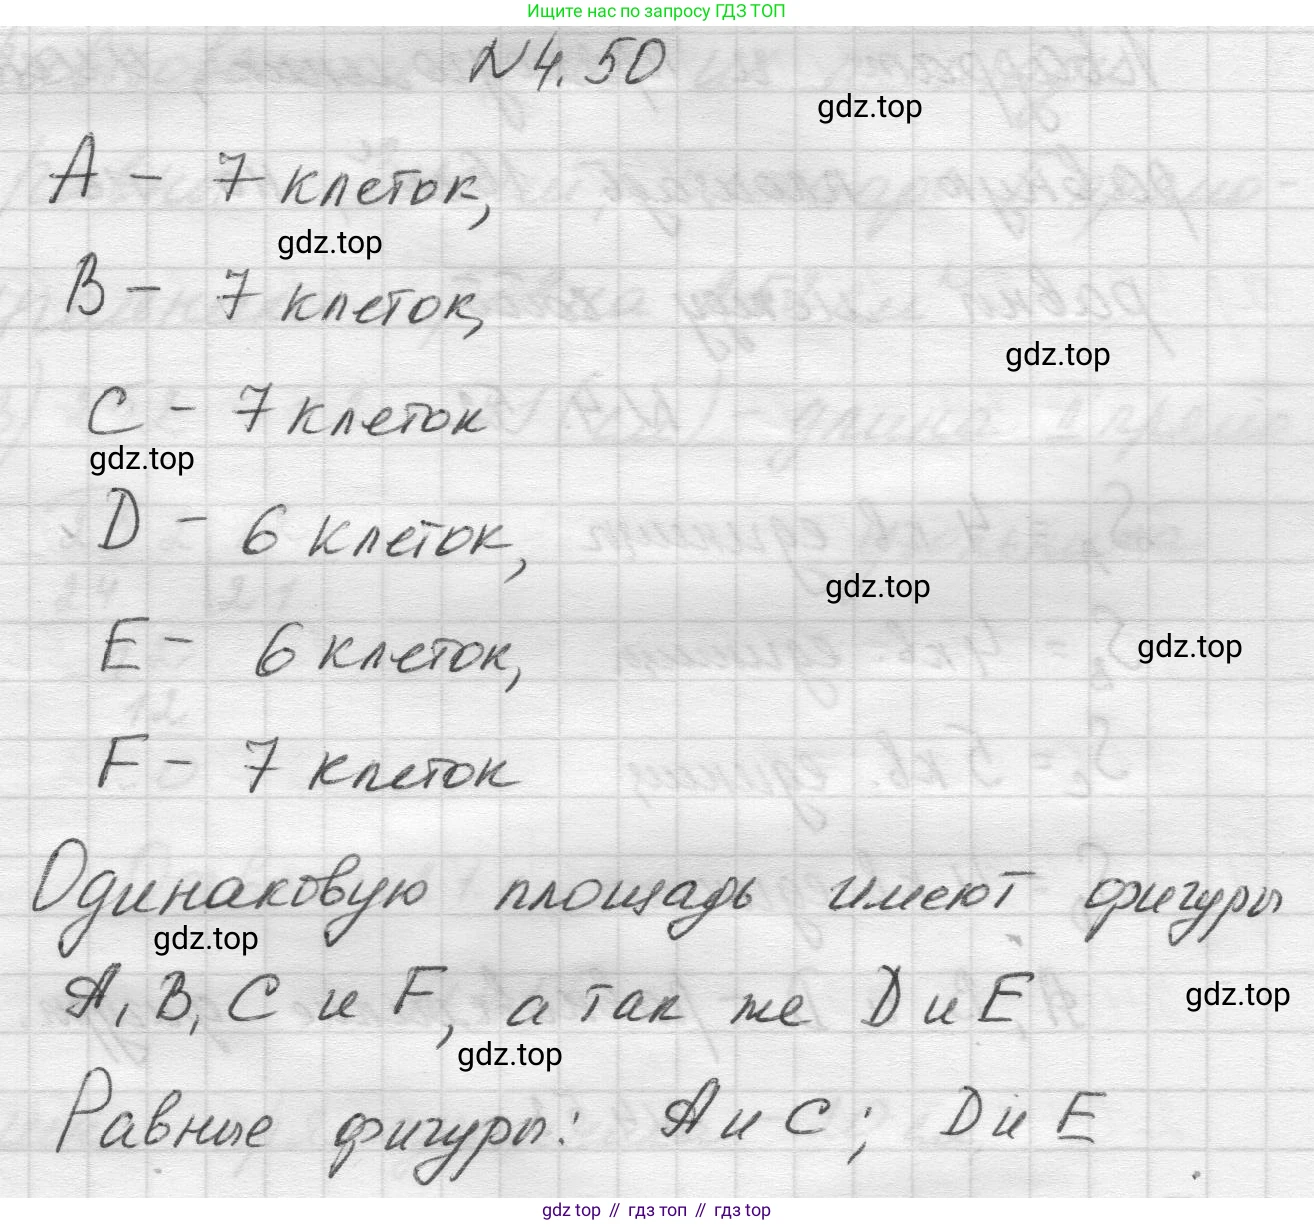 Ищите нас по запросу ГДЗ ТОП
N 4.50
gdz.top
A - 7 клеток,
gdz.top
B - 7 клеток,
gdz.top
C - 7 клеток
gdz.top
D - 6 клеток,
gdz.top
E - 6 клеток,
gdz.top
F - 7 клеток
Одинаковую площадь имеют фигуры
gdz.top
A, B, C и F, а так же D и E
gdz.top
gdz.top
Равные фигуры: A и C; D и E
gdz top // гдз топ // гдз top